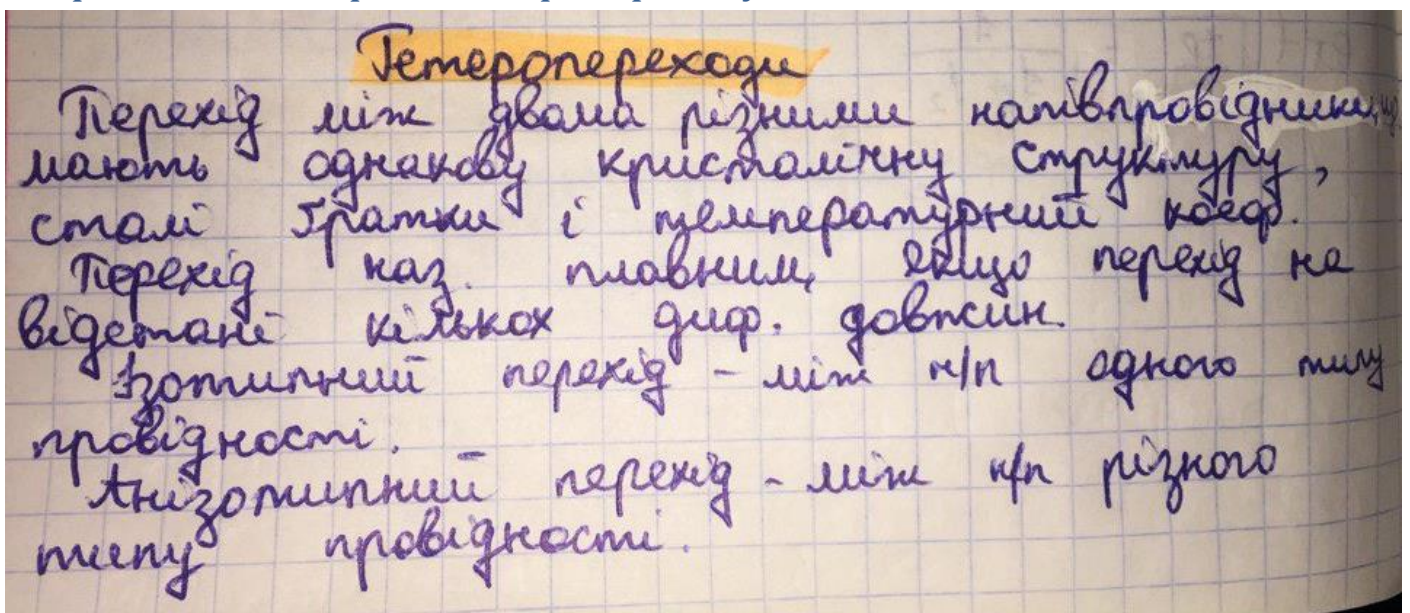 Гетеропереходи
Перехід між двома різними напівпровідниками, що
мають однакову кристалічну структуру,
сталі ґратки і температурний коеф.
Перехід наз. плавним, якщо перехід на
відстані кількох диф. довжин.
Ізотипний перехід - між н/п одного типу
провідності.
Анізотипний перехід - між н/п різного
типу провідності.